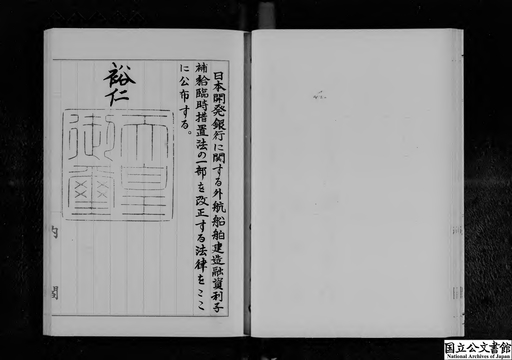 日本開発銀行に関する外航船舶建造融資利子
補給臨時措置法の一部を改正する法律をここ
に公布する。
裕仁
天皇
御璽
内閣
国立公文書館
National Archives of Japan